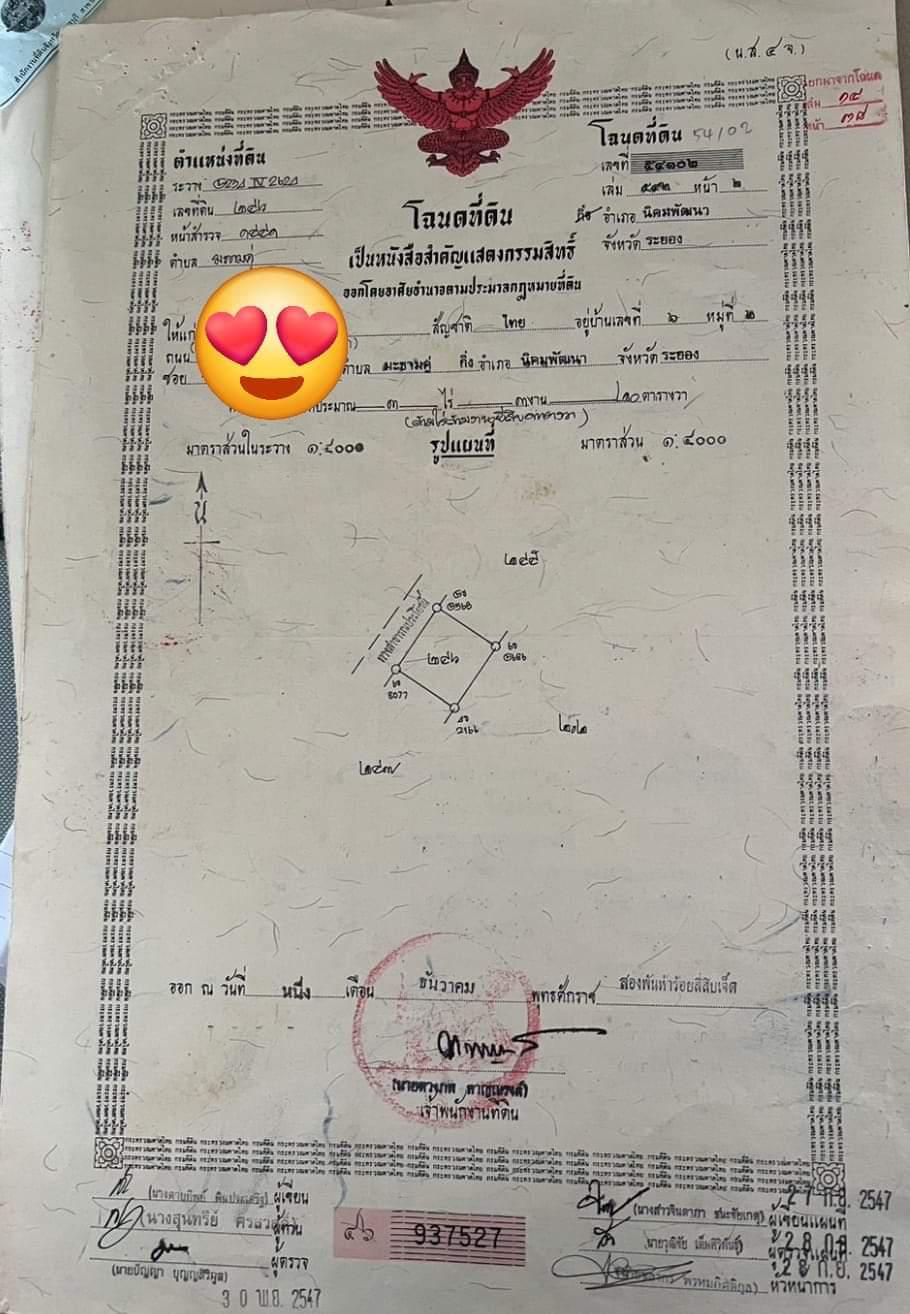 (น.ส.๔ จ.)
๑๔
หน้า ๓๘
ตำแหน่งที่ดิน
ระวาง
เลขที่ดิน ๒๔๖
หน้าสำรวจ
ตำบล มะขามคู่
โฉนดที่ดิน 54102
เลขที่ ๕๔๑๐๒
เล่ม ๕๔๒ หน้า ๒
กิ่ง อำเภอ นิคมพัฒนา
จังหวัด ระยอง
โฉนดที่ดิน
เป็นหนังสือสำคัญแสดงกรรมสิทธิ์
ออกโดยอาศัยอำนาจตามประมวลกฎหมายที่ดิน
สัญชาติ ไทย อยู่บ้านเลขที่ ๖ หมู่ที่ ๒
ถนน
ซอย ตำบล มะขามคู่ กิ่ง อำเภอ นิคมพัฒนา จังหวัด ระยอง
ประมาณ ๓ ไร่ ๓ งาน ๒๐ ตารางวา
(สามไร่สามงานยี่สิบตารางวา)
มาตราส่วนในระวาง ๑:๔๐๐๐ รูปแผนที่ มาตราส่วน ๑:๔๐๐๐
น
๒๔๕
ทางลำรางสาธารณประโยชน์
๒๔๖
3077
2166
๒๔๗
ออก ณ วันที่ หนึ่ง เดือน ธันวาคม พุทธศักราช สองพันห้าร้อยสี่สิบเจ็ด
เจ้าพนักงานที่ดิน
ผู้เขียน
นางสุนทรีย์ ผู้ทาน
ผู้ตรวจ
(นายปัญญา บุญญศิริกูล)
30 พ.ย. 2547
937527
27 ก.ย. 2547
ผู้เขียนแผนที่
28 ก.ย. 2547
ผู้ตรวจแผนที่
28 ก.ย. 2547
หัวหน้าการ